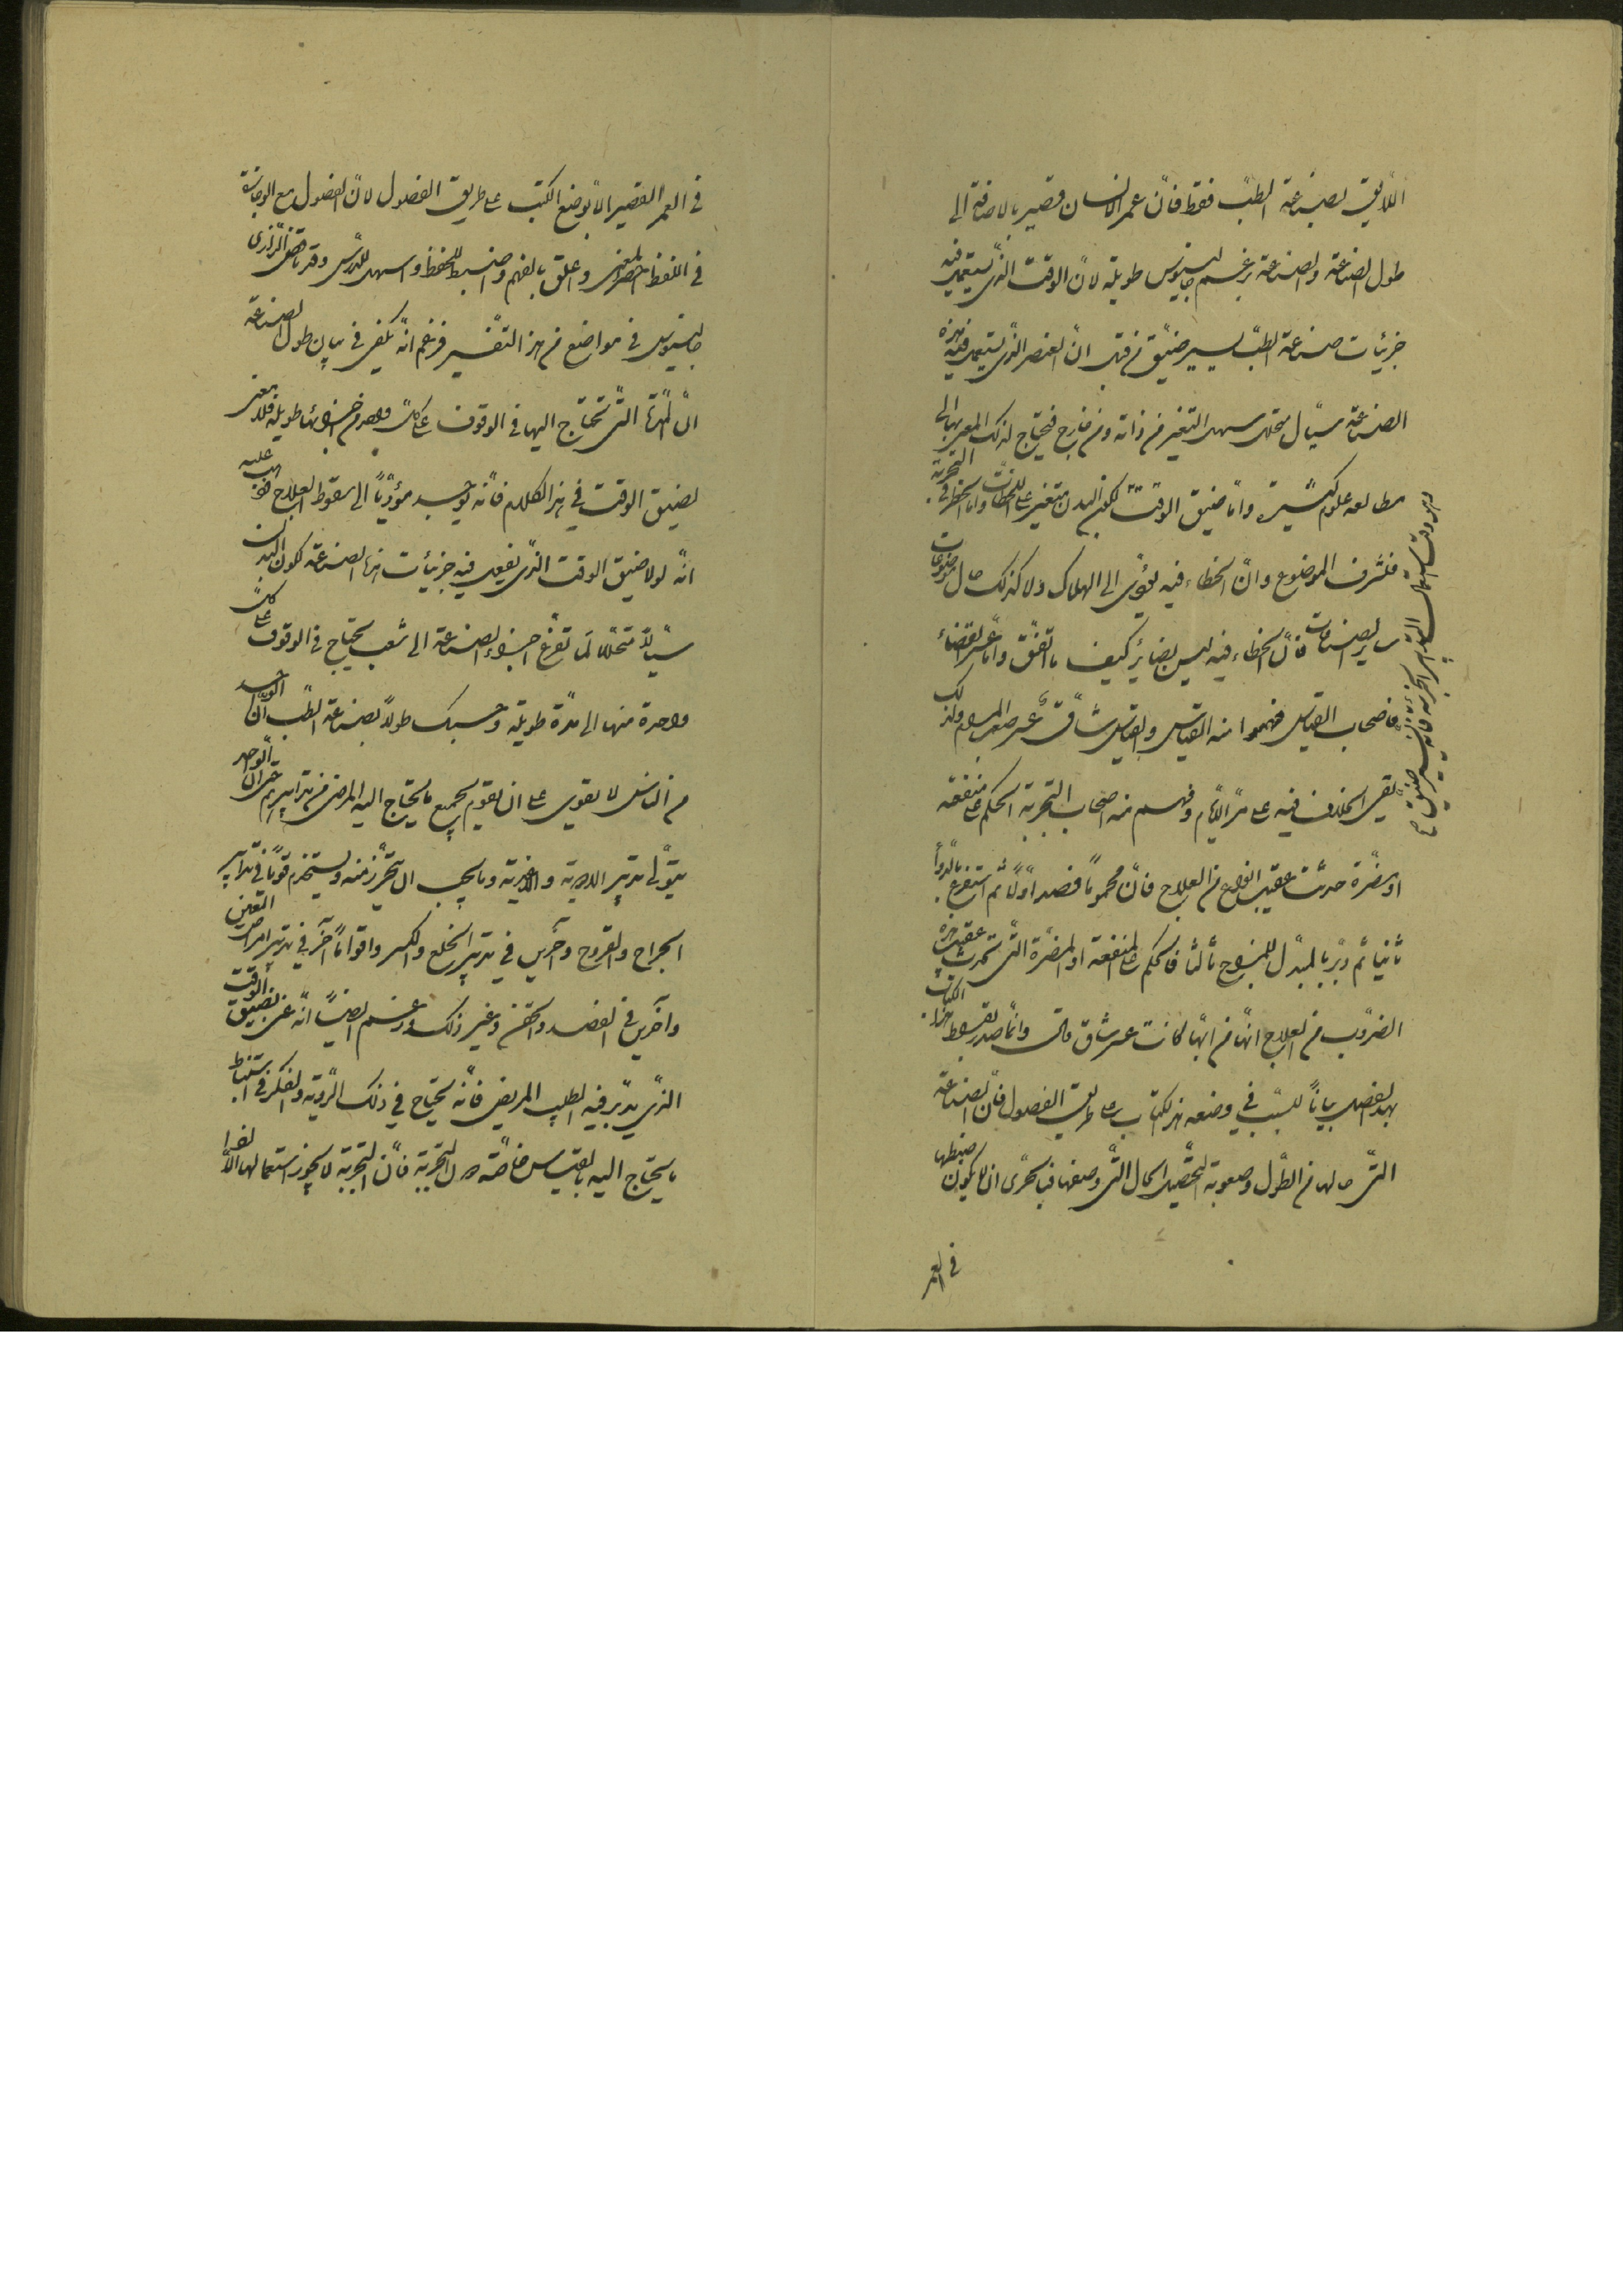 اللّايق بصناعة الطبّ فقط فانّ عمر الانسان قصير بالاضافة الى
طول الصناعة والصناعة بزعم جالينوس طويلة لانّ الوقت الذّى يستعمل فيه
جزئيات صناعة الطبّ يسير ضيّق من قبل انّ العنصر الذّى يستعمل فيه هذه
الصناعة سيّال متحلل سهل التغير من ذاته ومن خارج فيحتاج لذلك المعنى بها الى
مطالعه علوم كثيرة وامّا ضيق الوقت لكون البدن متغير على اللحظات وامّا الخطر فى التجربة
فلشرف الموضوع وانّ الخطاء فيه يؤدى الى الهلاك ولا كذلك حال موضوعات
ساير الصناعات فانّ الخطاء فيه ليس بضاير كيف ما اتفق وامّا عسر القضاء
فاصحاب القياس فهموا منه القياس والقياس شاق عسر صعب المرام ولذلك
بقى الخلاف فيه على مرّ الايّام وفهم منه اصحاب التجربة الحكم على منفعة
او مضرّة حدثت عقيب انواع من العلاج فانّ محموماً فصد اوّلاً ثم استفرغ بالدوأ
ثانياً ثم دبّر بالمبدّل للمزاج ثالثا فالحكم على المنفعة او المضرّة التّى تحدث عقيب هذه
الضروب من العلاج انّها من ايّها كانت عسر شاق قال وانّما صدر بقراط هذا الكتاب
بهذا الفصل بياناً للسبّب فى وضعه هذا الكتاب على طريق الفصول فانّ الصناعة
التّى حالها من الطّول وصعوبة التّحصيل الحال التّى وصفها فبالحرّى ان لا يكون ضبطها
فى العمر
فى العمر القصير الاّ بوضع الكتب على طريق الفصول لانّ الفصول مع الوجازة
فى اللفظ احصر للمعنى واعلق بالفهم واضبط للحفظ واسهل للدّرس وقد ناقض الرّازى
جالينوس فى مواضع من هذا التفسير فزعم انّه يكفى فى بيان طول الصناعة
انّ المدّة التّى تحتاج اليها فى الوقوف على كلّ واحد من اجزائها طويلة فلا معنى
لضيق الوقت فى هذا الكلام فانّه يوجد مؤدّياً الى سقوط العلاج
انّه لولا ضيق الوقت الذّى يفعل فيه جزئيات هذه الصناعة لكون البدن
سيّالاً متحلّلاً لما تفرع اجزاء الصناعة الى شعب يحتاج فى الوقوف على كلّ
واحدة منها الى مدّة طويلة وحسبك طولاً بصناعة الطّب انّ الواحد
من الناس لا يقوى على ان يقوم بجميع ما يحتاج اليه المرضى من تدابيرهم حتى انّ الواحد
يتولّى تدبير الادوية والاغذية وما يجب ان يتحرّز منه ويستخدم قوماً فى تدابير
الجراح والقروح وآخرين فى تدبير الخلع والكسر واقواماً آخر فى تدبير امراض العين
وآخرين فى الفصد والحقن وغير ذلك وزعم ايضاً انّه عنى بضيق الوقت
الذّى يدبّر فيه الطبيب المريض فانّه يحتاج فى ذلك الى الرّوية والفكر فى استنباط
ما يحتاج اليه بالقياس خاصّة دون التجربة فانّ التجربة لا يجوز استعمالها الاّ